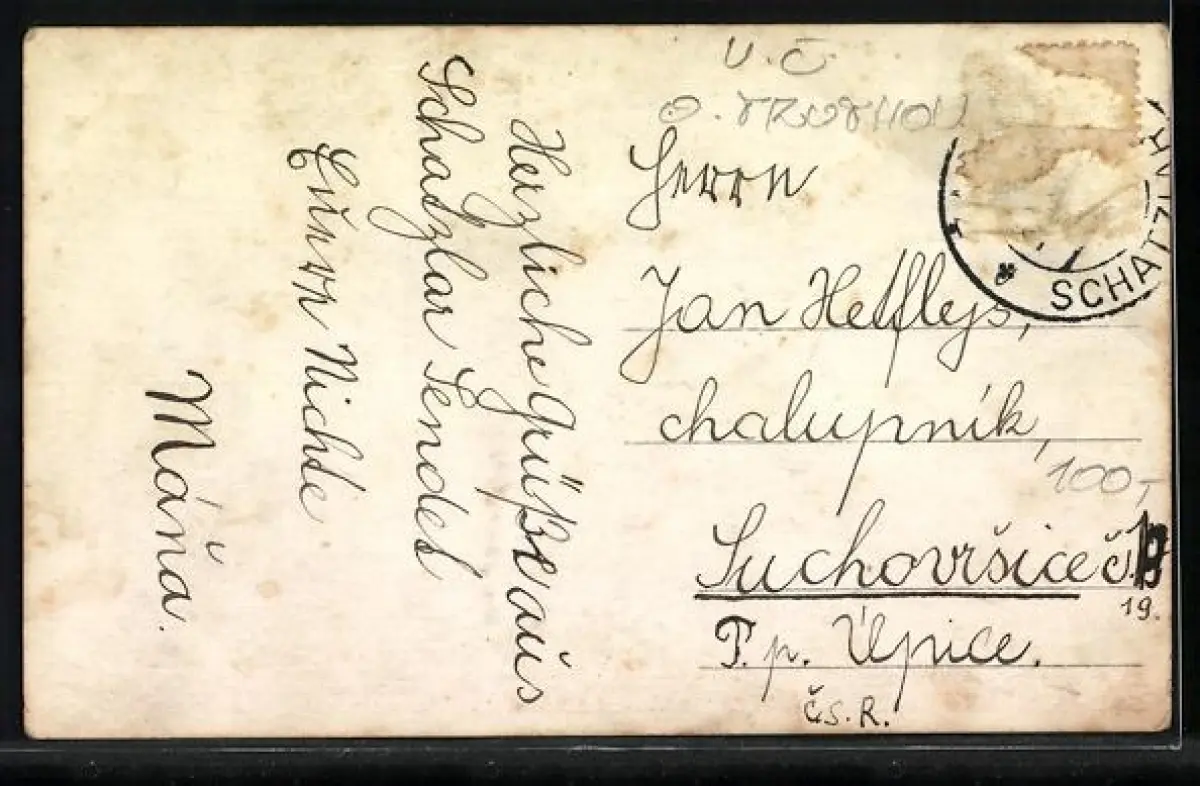 Herzliche Grüße aus
Schatzlar sendet
Eure Nichte
Máňa.
U.Č.
O. TRUTNOV
Herrn
Jan Hetflejš,
chalupník,
100,-
Suchovršice č.
19.
P. p. Úpice.
Čs.R.
SCHATZLAR